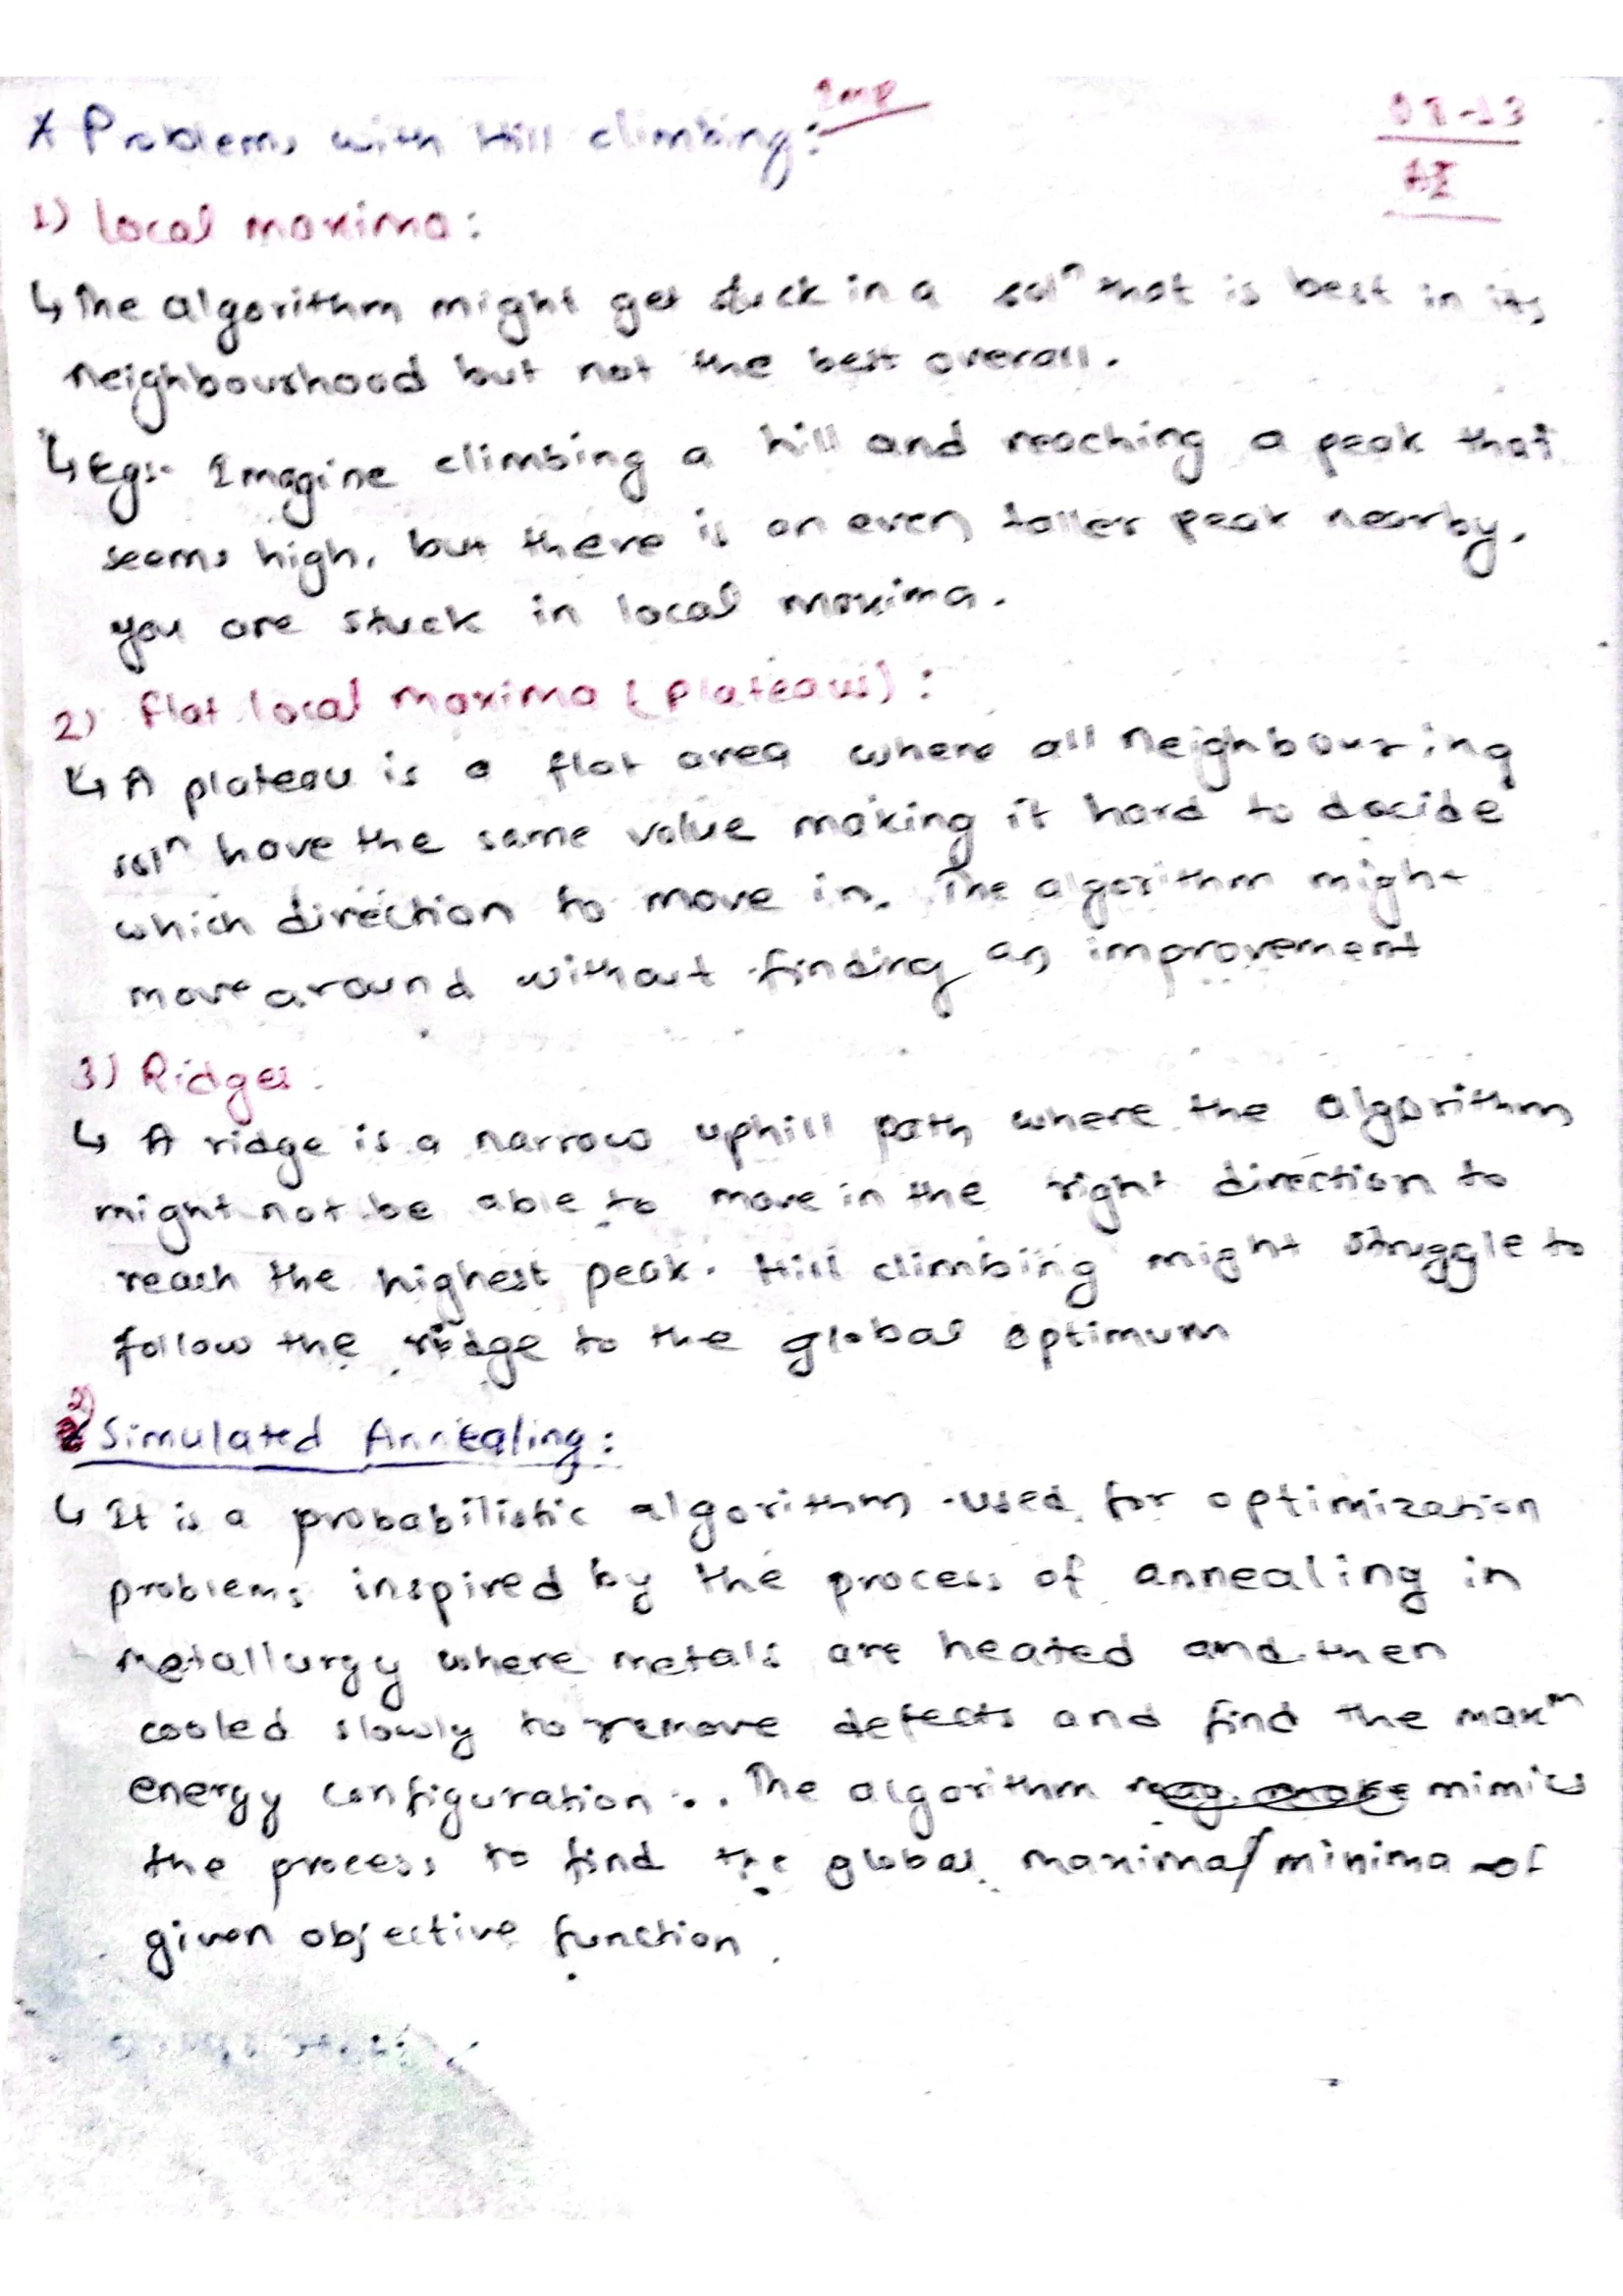 * Problems with Hill climbing: Imp
AI
1) Local maxima:
↳ The algorithm might get stuck in a solⁿ that is best in its
neighbourhood but not the best overall.
↳ Eg:- Imagine climbing a hill and reaching a peak that
seems high, but there is an even taller peak nearby,
you are stuck in local maxima.
2) Flat local maxima (Plateaus):
↳ A plateau is a flat area where all neighbouring
solⁿ have the same value making it hard to decide
which direction to move in. The algorithm might
move around without finding an improvement
3) Ridges:
↳ A ridge is a narrow uphill path where the algorithm
might not be able to move in the right direction to
reach the highest peak. Hill climbing might struggle to
follow the ridge to the global optimum
2) Simulated Annealing:
↳ It is a probabilistic algorithm used for optimization
problems inspired by the process of annealing in
metallurgy where metals are heated and then
cooled slowly to remove defects and find the maxᵐ
energy configuration.. The algorithm mimics
the process to find the global maxima/minima of
given objective function.